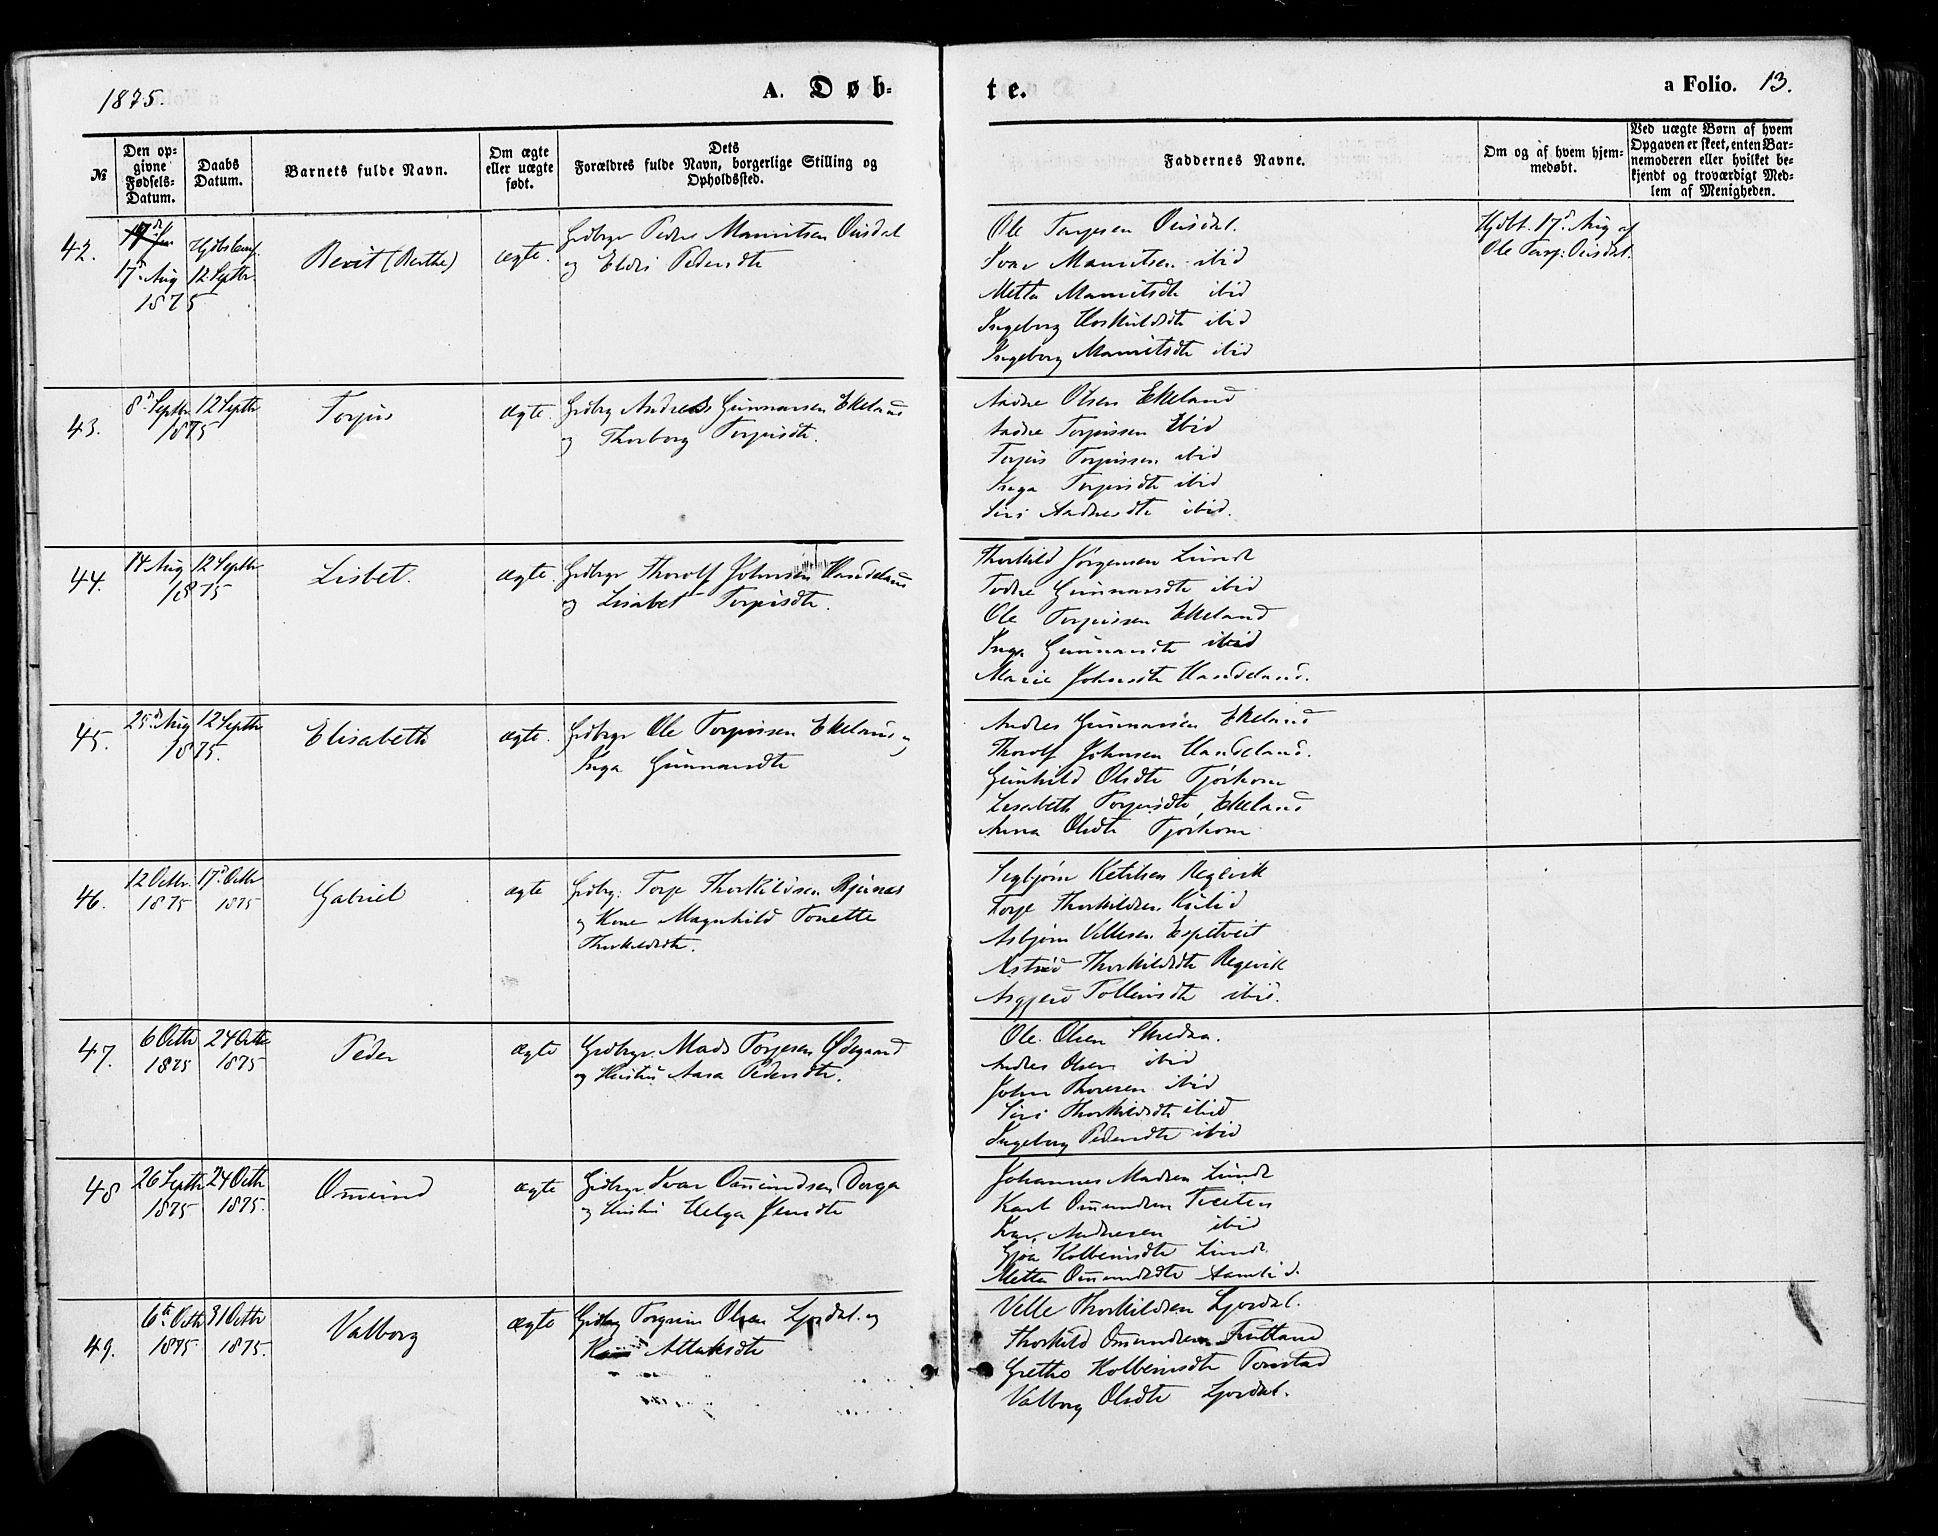 1875.
A. Døb-
te.
a Folio. 13.
№
Den op-
givne
Fødsels-
Datum.
Daabs
Datum.
Barnets fulde Navn.
Om ægte
eller uægte
født.
Dets
Forældres fulde Navn, borgerlige Stilling og
Opholdssted.
Faddernes Navne.
Om og af hvem hjem-
medøbt.
Ved uægte Børn af hvem
Opgaven er skeet, enten Bar-
nemoderen eller hvilket be-
kjendt og troværdigt Med-
lem af Menigheden.
42.
17d Aug
1875
12 Septbr
Berit (Berthe)
ægte.
Grdbrgr Peder Mauritsen Ousdal
og Eldri Pedersdtr
Ole Torjesen Ousdal.
Ivar Mauritsen ibid
Metta Mauritsdtr ibid
Ingeborg Hoskuldsdtr ibid
Ingeborg Mauritsdtr ibid
Hjdbt. 17d Aug af
Ole Torj: Ousdal.
43.
8d Septbr 12 Septbr
1875
Torjus
ægte.
Grdbrg Andreas Gunnarsen Ekeland
og Thorborg Torjusdtr.
Aadne Olsen Ekeland
Aadne Torjussen Ibid
Torjus Torjussen ibid
Inga Torjusdtr ibid
Siri Aadnesdtr ibid.
44.
14 Aug 12 Septbr
1875
Lisbet.
ægte.
Grdbrgr Thorolf Johnsen Handeland
og Lisabet Torjusdtr.
Thorkild Jørgensen Lunde
Todne Gunnarsdtr ibid
Ole Torjussen Ekeland
Inga Gunnarsdtr ibid
Marie Johnsdtr Handeland.
45.
25d Aug 12 Septbr
1875.
Elisabeth
ægte.
Grdbrgr Ole Torjussen Ekeland og
Inga Gunnarsdtr
Andres Gunnarsen Ekeland
Thorolf Johnsen Handeland.
Gunhild Olsdtr Tjørhom
Lisabeth Torjusdtr Ekeland
Anna Olsdtr Tjørhom
46.
12 Octbr. 17d Octbr
1875 1875
Gabriel
ægte
Grdbrg. Torje Thorkildsen Bjunes
og Kone Magnhild Tonette
Thorkildsdtr.
Sigbjørn Ketilsen Regevik
Torje Thorkildsen Kulid
Asbjørn Vellesen Espetveit
Astrid Thorkildsdtr Regevik
Asgjerd Tolleivsdtr ibid.
47.
6 Octbr 24 Octbr
1875 1875
Peder
ægte
Grdbrgr. Mads Torjesen Ødegaard
og Hustru Aasa Pedersdtr.
Ole Olsen Skredaa.
Andres Olsen ibid
John Thoresen ibid
Siri Thorkildsdtr ibid
Ingeborg Pedersdtr ibid
48
26 Septbr 24 Octbr
1875 1875.
Omund
ægte
Grdbrgr Ivar Omundsen Dorga
og Hustru Helga Jensdtr
Johannes Madsen Lunde
Karl Omundsen Tveiten
Ivar Andresen ibid
Gjøa Kolbeinsdtr Lunde
Metta Omundsdtr Aamlid.
49.
6te Octbr 31 Octbr
1875 1875.
Valborg
ægte
Grdbrg Torgrim Olsen Ljosdal. og
Kari Atlaksdtr
Velle Thorkildsen Ljosdal.
Thorkild Omundsen Fintland
Grethe Kolbeinsdtr Tonstad
Valborg Olsdtr Ljosdal.